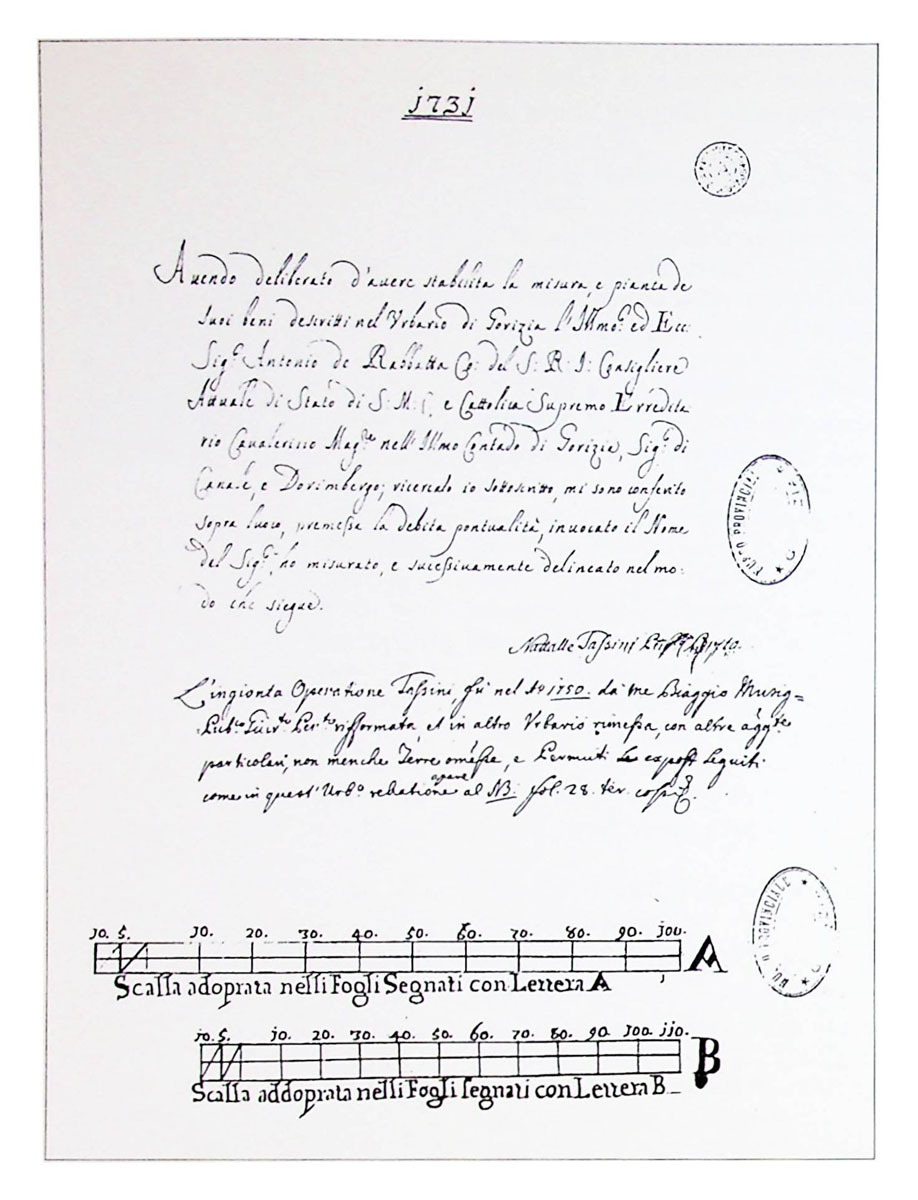 j73j
Auendo deliberato d'auere stabilita la misura, e pianta de
suoi beni descritti nel Vrbario di Gorizia l'Illmo: ed Ecc:
Sig: Antonio de Rabbatta Co: del S: R: I: Consigliere
Attuale di Stato di S: M: C, e Cattolica Supremo Erredita
rio Caualerizzo Mag:re nell'Illmo Contado di Gorizia, Sig: di
Canale, e Dorimbergo; ricercato io sottoscritto, mi sono conferito
sopra luoco, premessa la debita pontualità, inuocato il Nome
del Sig:, ho misurato, e sucessiuamente delineato nel mo:
do che siegue.
Nattalle Tassini
L'ingionta Operatione Tassini fù nel Ao 1750. da me Biaggio
rifformata, et in altro Vrbario rimessa, con altre
particolari, non menche Terre omesse, e Permuti seguiti
come in quest' Urbo. rellatione apare al NB: fol. 28. ter.
MUSEO PROVINCIALE
PROVINCIALE
jo. 5. jo. 20. 30. 40. 50. 60. 70. 80. 90. joo. A
Scalla adoprata nelli Fogli Segnati con Lettera A
jo. 5. jo. 20. 30. 40. 50. 60. 70. 80. 90. joo. jjo. B
Scalla addoprata nelli Fogli segnati con Lettera B